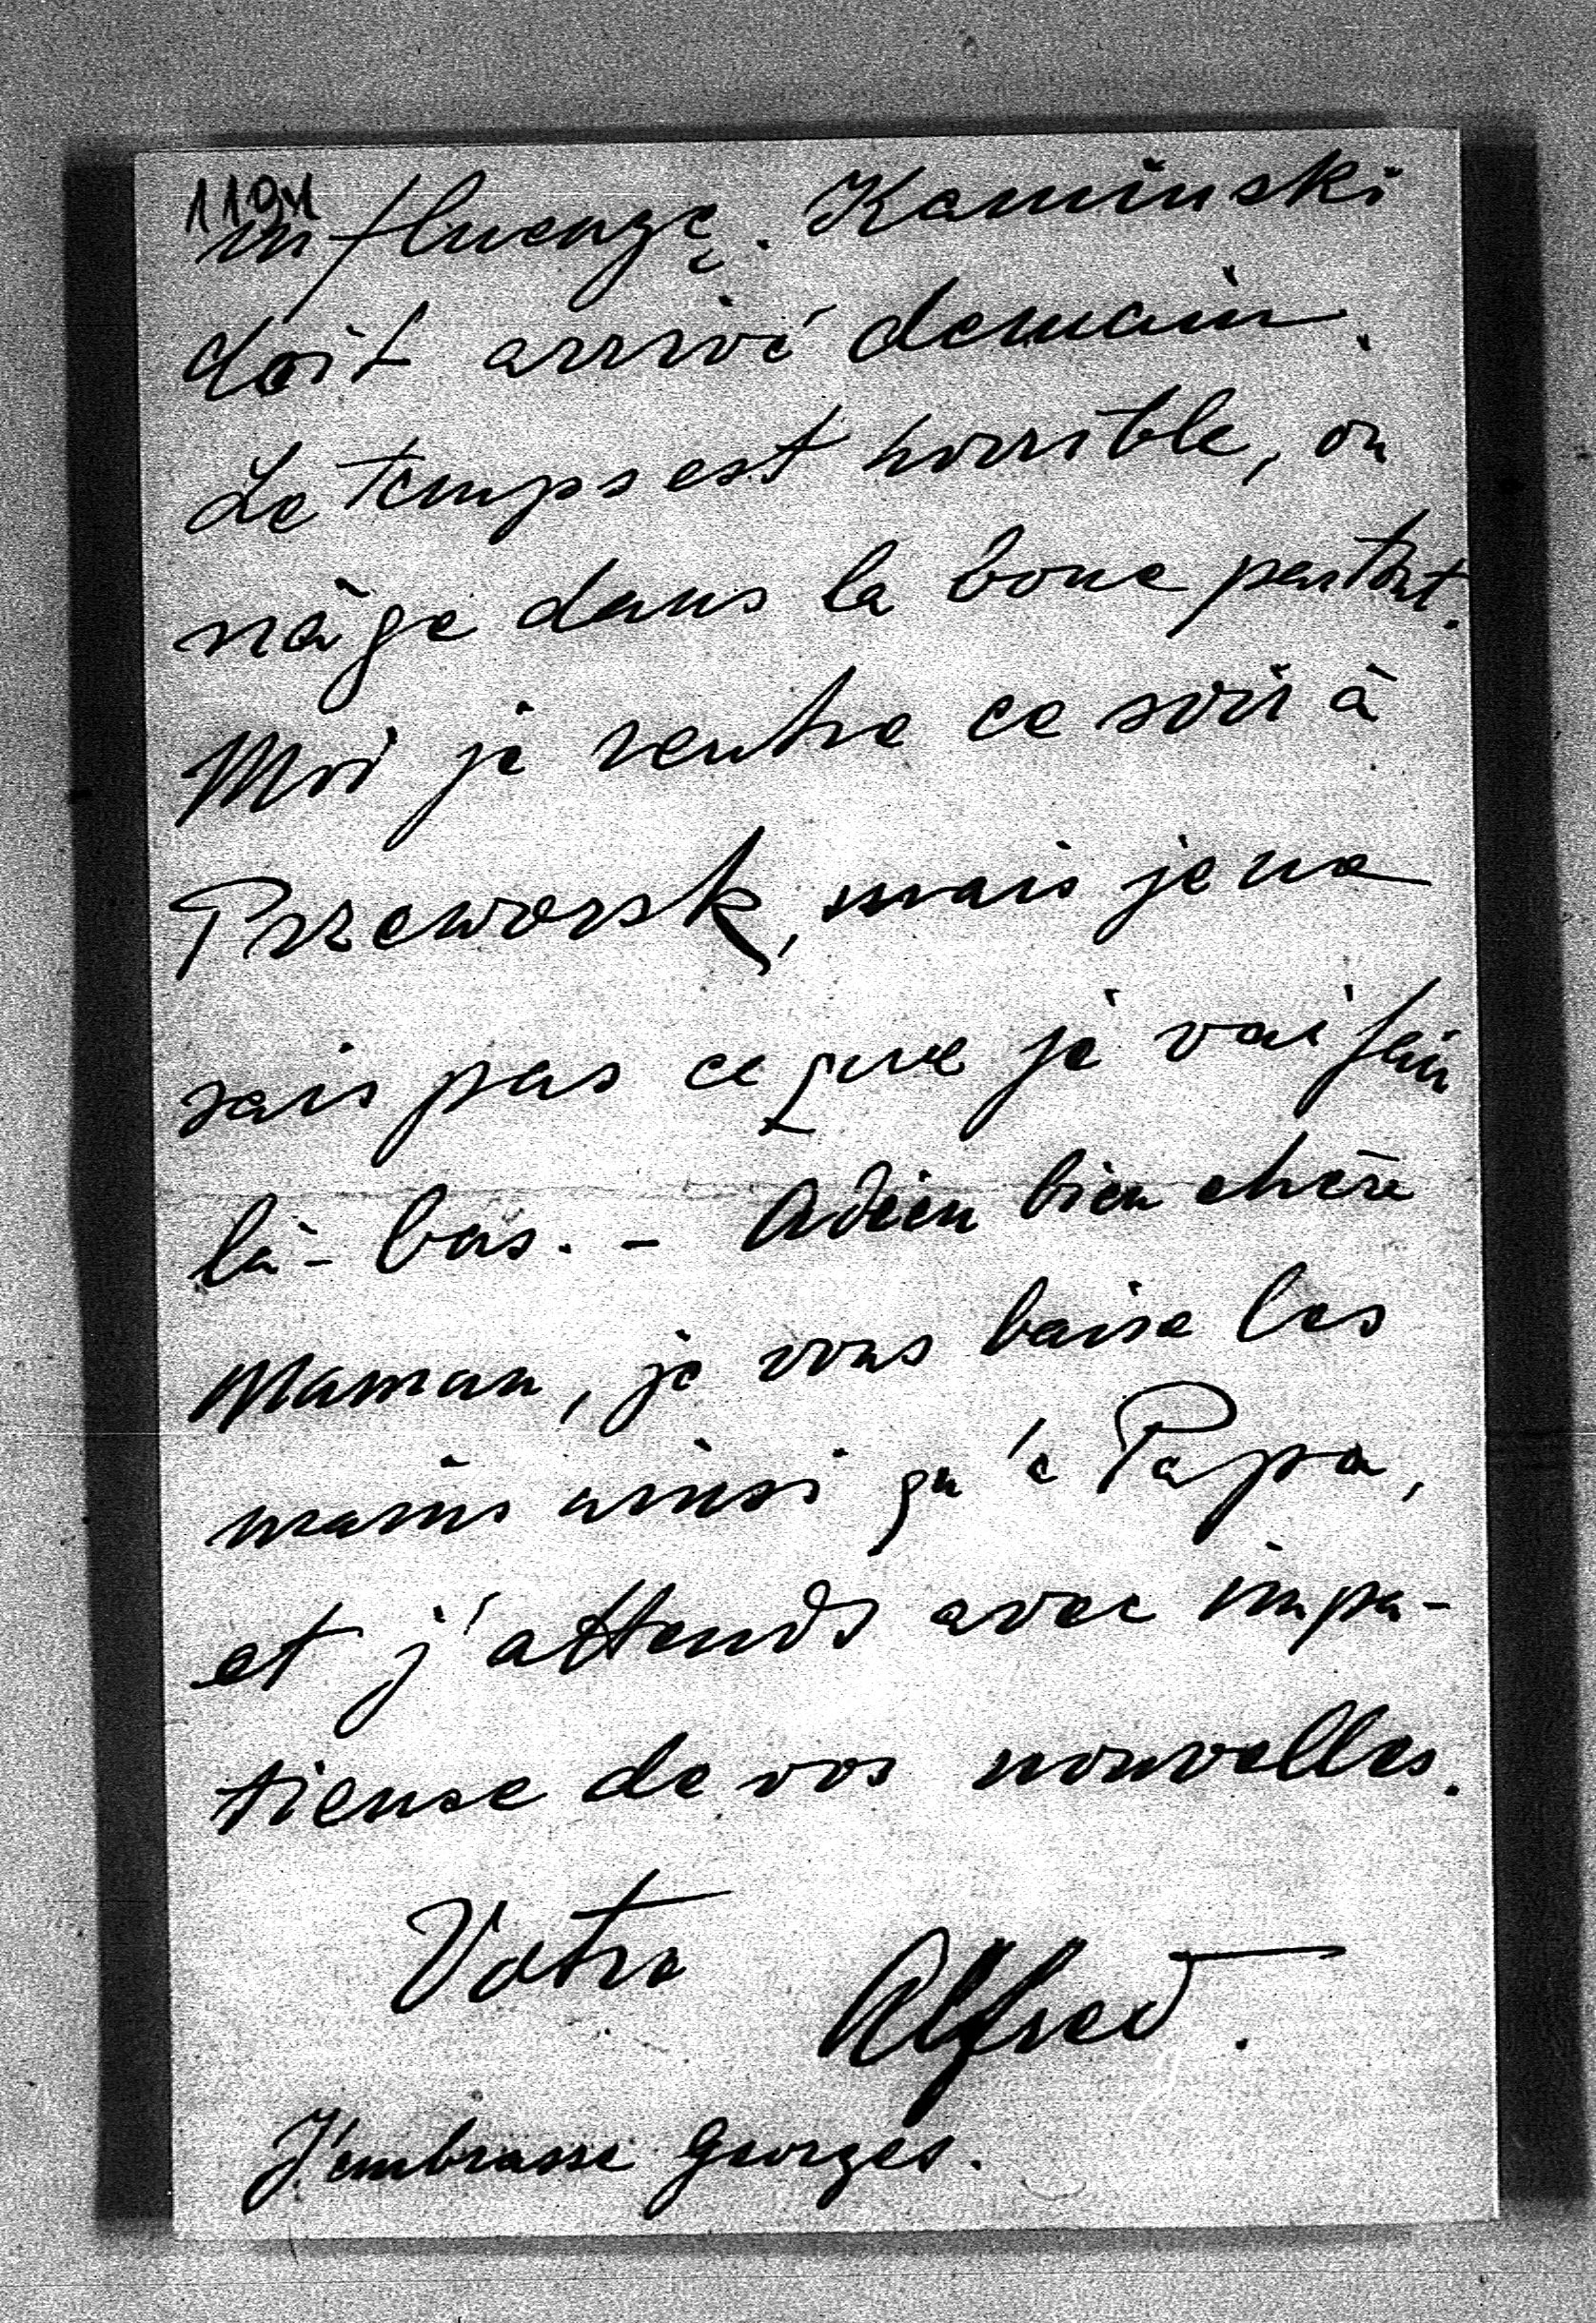 1194
influenzę. Kaminski
doit arrivé demain.
Le temps est horrible, on
nage dans la boue partout.
Moi je rentre ce soir à
Przeworsk, mais je ne
sais pas ce que je vai fair
là-bas. - Adieu bien chère
Maman, je vous baise les
mains ainsi qu'à Papa,
et j'attends avec impa-
tiense de vos nouvelles.
Votre Alfred.
J'embrasse Georges.